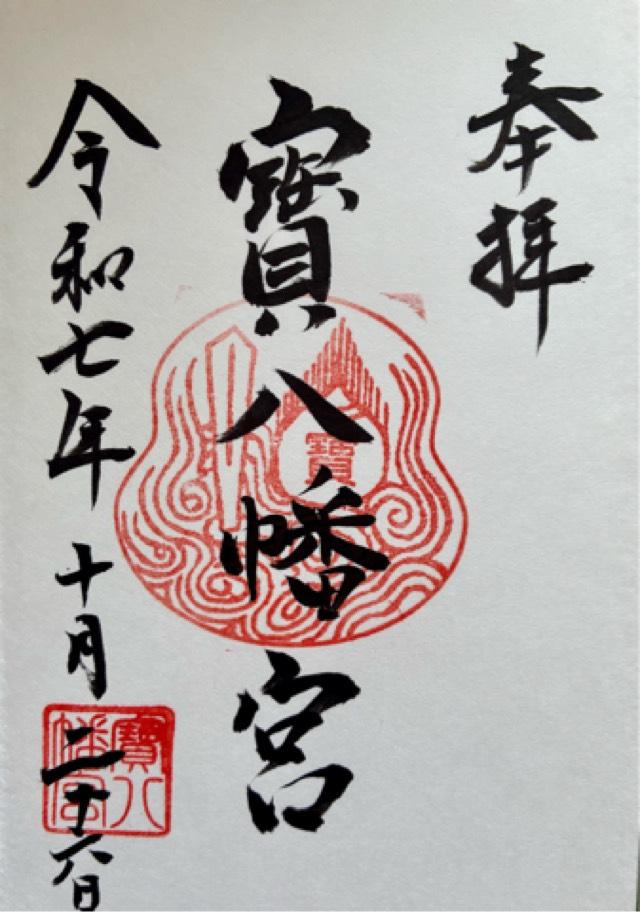 奉拝
寳八幡宮
寳
令和七年十月二十六日
寳八幡宮